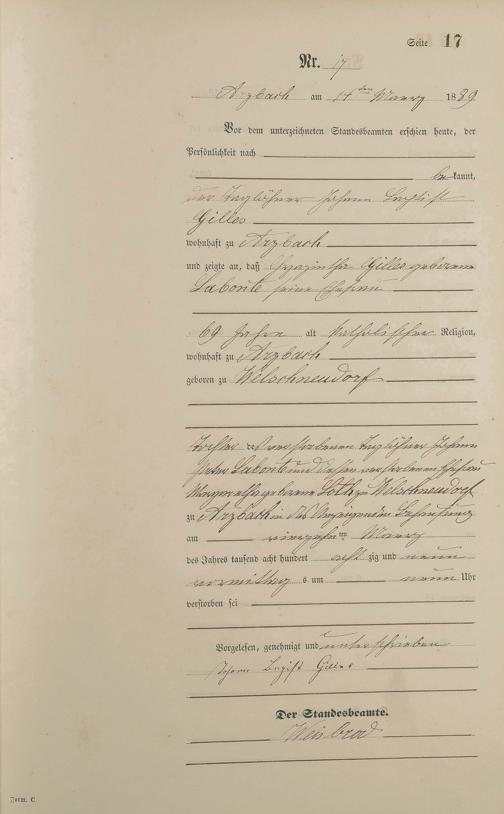 Seite 17
Nr. 17
Arzbach am 14ten Maerz 1889
Vor dem unterzeichneten Standesbeamten erschien heute, der
Persönlichkeit nach
bekannt,
der Taglöhner Johann Baptist
Gilles
wohnhaft zu Arzbach
und zeigte an, daß Gilles geborene
Labonte seine Ehefrau
69 Jahre alt katholischer Religion,
wohnhaft zu Arzbach
geboren zu Welschneudorf
Tochter des verstorbenen Taglöhner Johann
Peter Labonte und dessen verstorbenen Ehefrau
Margaretha geborene Loth zu Welschneudorf
zu Arzbach in des Anzeigenden Behausung
am vierzehnten Maerz
des Jahres tausend acht hundert achtzig und neun
vormittags um neun Uhr
verstorben sei
Vorgelesen, genehmigt und unterschrieben
Johann Baptist Gilles
Der Standesbeamte.
Weisbrod
Form. C.